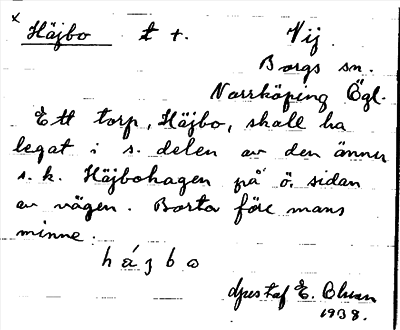 x
Häjbo t +. Vij.
Borgs sn.
Norrköping Ögl.
Ett torp, Häjbo, skall ha
legat i s. delen av den ännu
s. k. Häjbohagen på ö. sidan
av vägen. Borta före mans
minne.
E.
1938.